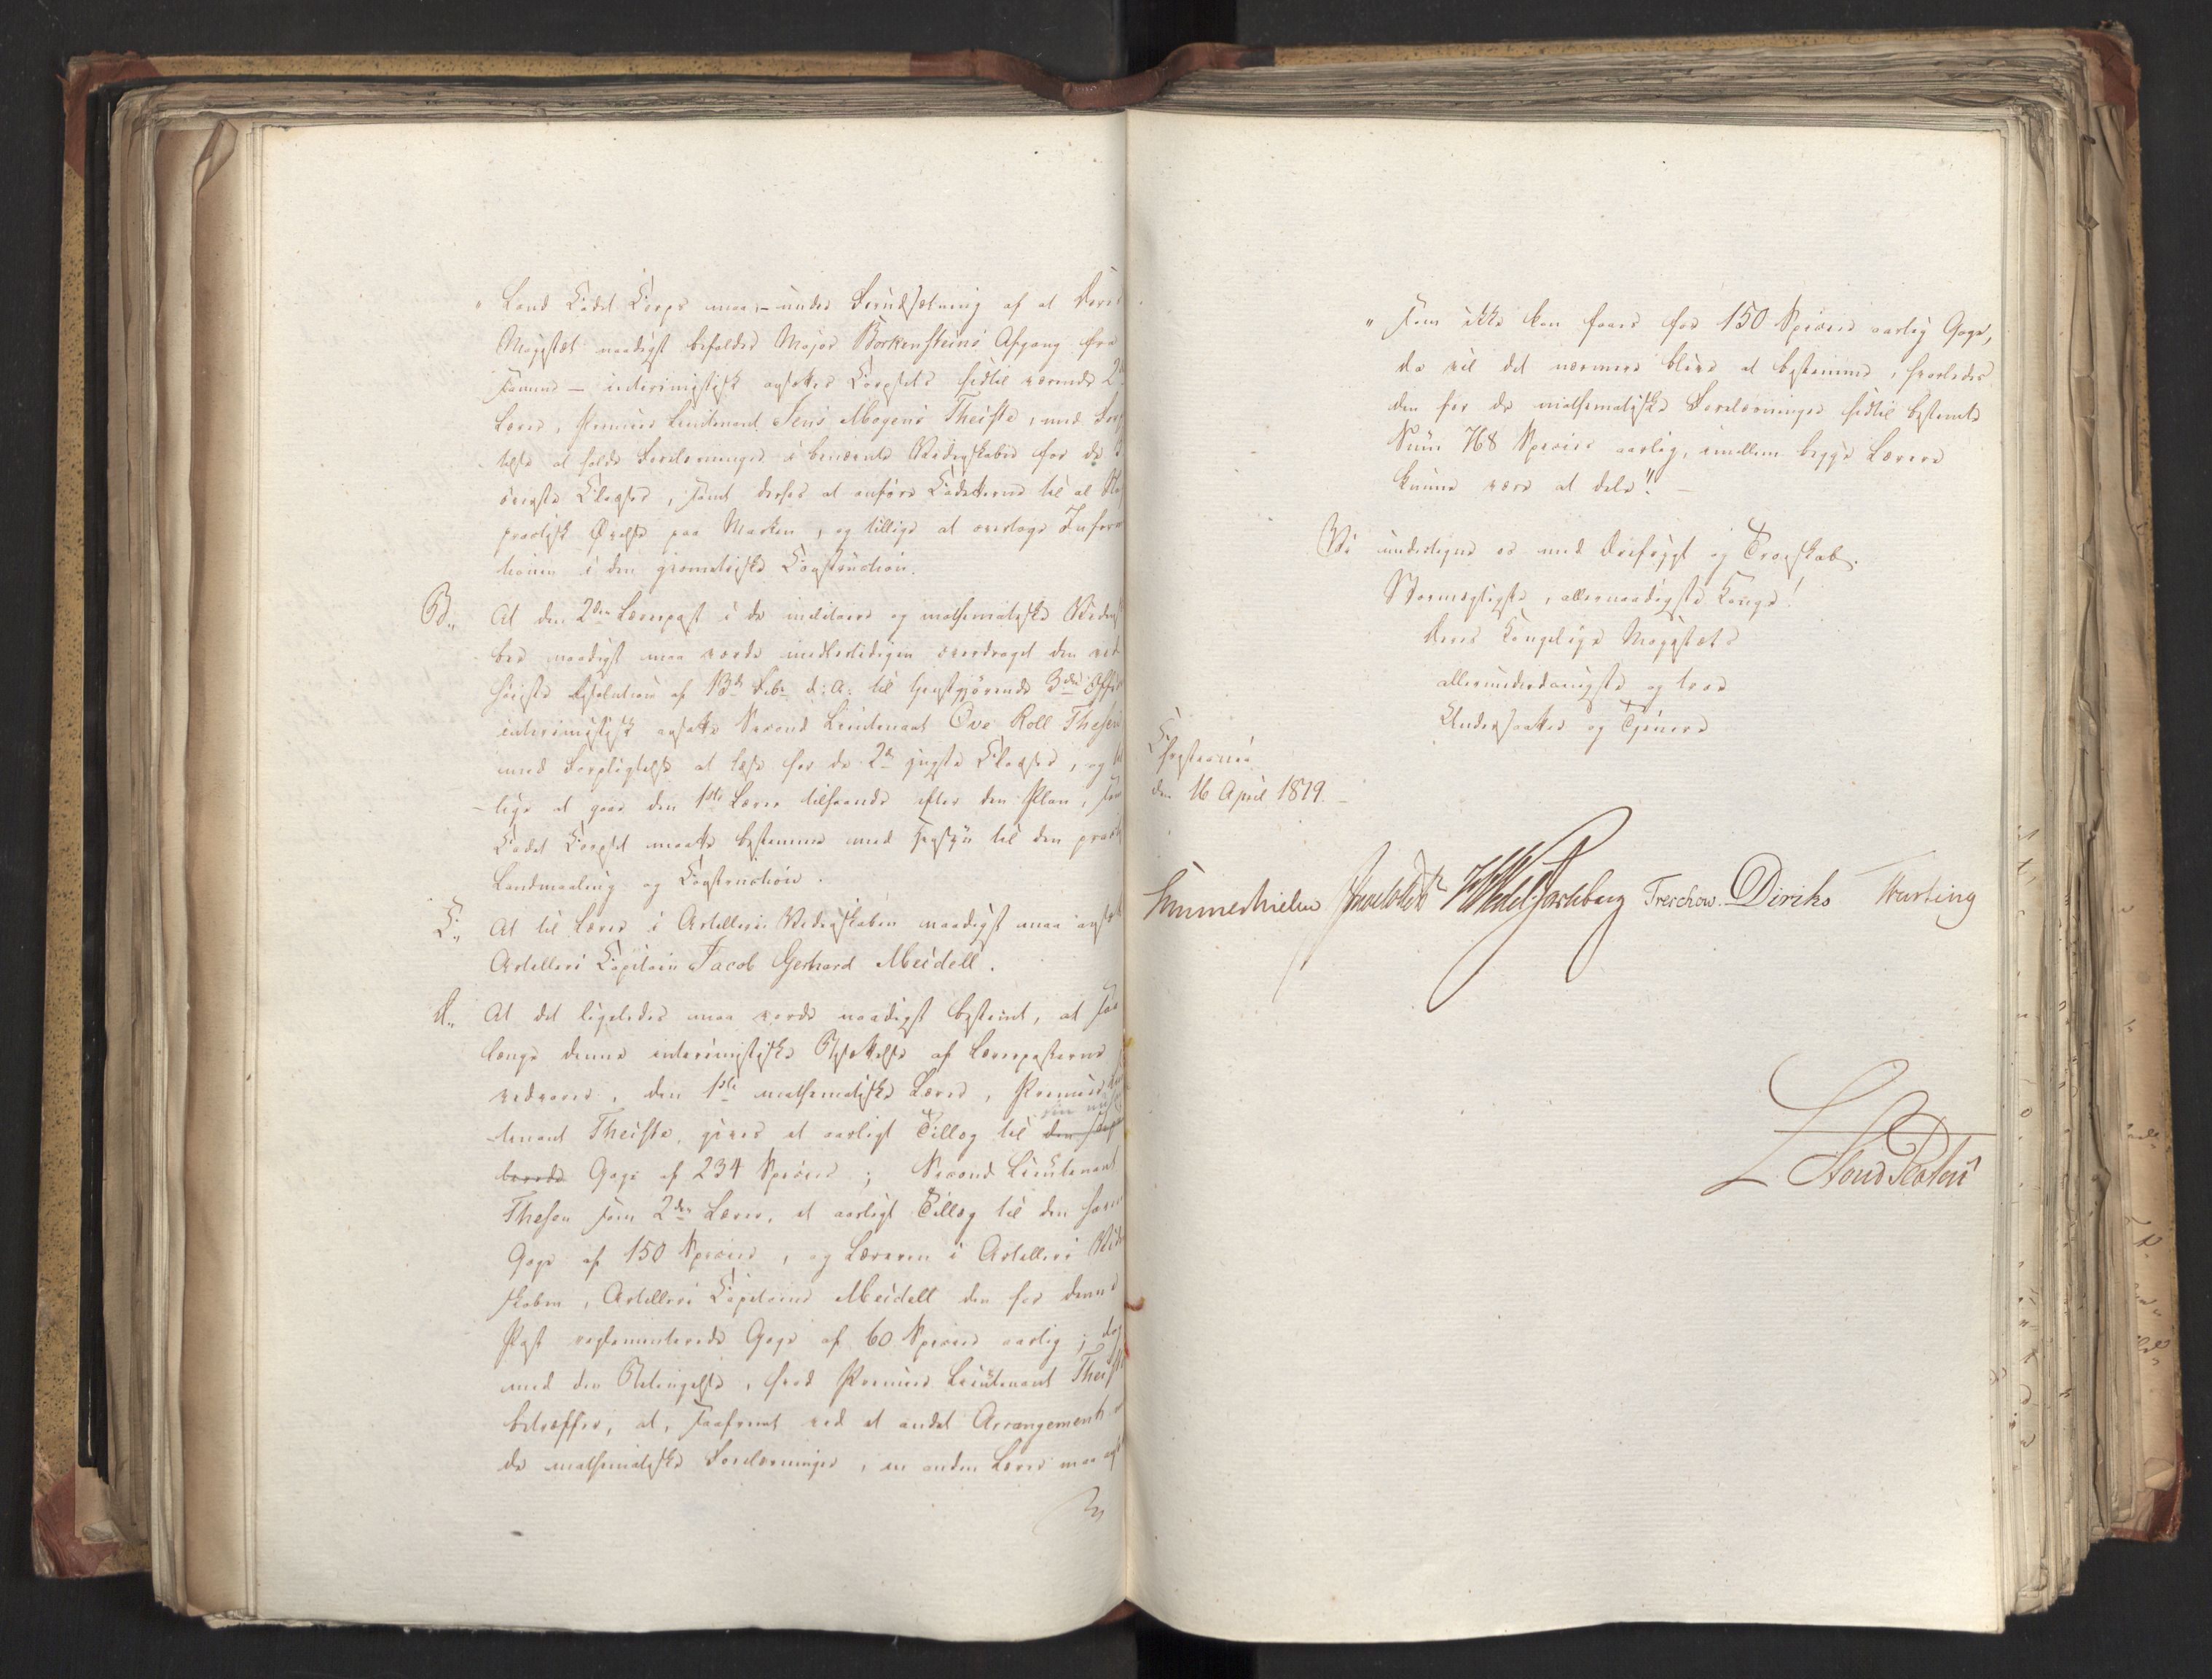 " Land Cadet Corps maa, – under Forudsætning af at Deres
Majestæt naadigst befaler Major Borkensteins Afgang fra
samme – interimistisk ansættes Corpsets hidtil værende 2
Lærer, Premier Lieutenant Jens Mogens Theiste, med For
telse at holde Forelæsninger i benævnte Videnskaber for de
øverste Classer, samt derhos at anføre Cadetterne til al
practisk Øvelse paa Marken, og tillige at overtage Informa
tionen i den geometriske Construction.
B,, At den 2den Lærerpost i de militaire og mathematiske Videnska
ber naadigst maa vorde midlertidigen overdraget den ved
høieste Resolution af 13de Febr. d: A: til tjenstgjørende 3die Officier
interimistisk ansatte Second Lieutenant Ove Roll Thesen
med Forpligtelse at læse for de 2de yngste Classer, og til
lige at gaae den 1ste Lærer tilhaande efter den Plan, som
Cadet Corpset maatte bestemme med Hensyn til den pract
Landmaaling og Construction.
C,, At til Lærer i Artilleri Videnskaben naadigst maa ansættes
Artilleri Capitain Jacob Gerhard Meidell.
D,, At det ligeledes maa vorde naadigst bestemt, at saa
længe denne interimistiske Besættelse af Lærerposterne
vedvarer, den 1ste mathematiske Lærer, Premier Lieu
tenant Theiste, gives et aarligt Tillæg til den
sin
Gage af 234 Species; Second Lieutenant
Thesen som 2den Lærer, et aarligt Tillæg til den
Gage af 150 Species, og Læreren i Artilleri Viden
skaben, Artilleri Capitaine Meidell den for denne
Post reglementerede Gage af 60 Species aarlig; dog
med den Betingelse, hvad Premier Lieutenant Theiste
betræffer, at, saafremt ved et andet Arrangement
de mathematiske Forelæsninger, en anden Lærer maa
" som ikke kan faaes for 150 Species aarlig Gage,
da vil det nærmere blive at bestemme, hvorledes
den for de mathematiske Forelæsninger hidtil bestemte
Sum 768 Species aarlig, imellem begge Lærere
kunne være at dele". –
Vi undertegne os med Ærefrygt og Troeskab.
Stormægtigste, allernaadigste Konge!
Deres Kongelige Majestæts
allerunderdanigste og troe
Undersaatter og Tjenere
Christiania
den 16 April 1819. –
Sommerhielm Wedel Jarlsberg Treschow. Diriks Fasting